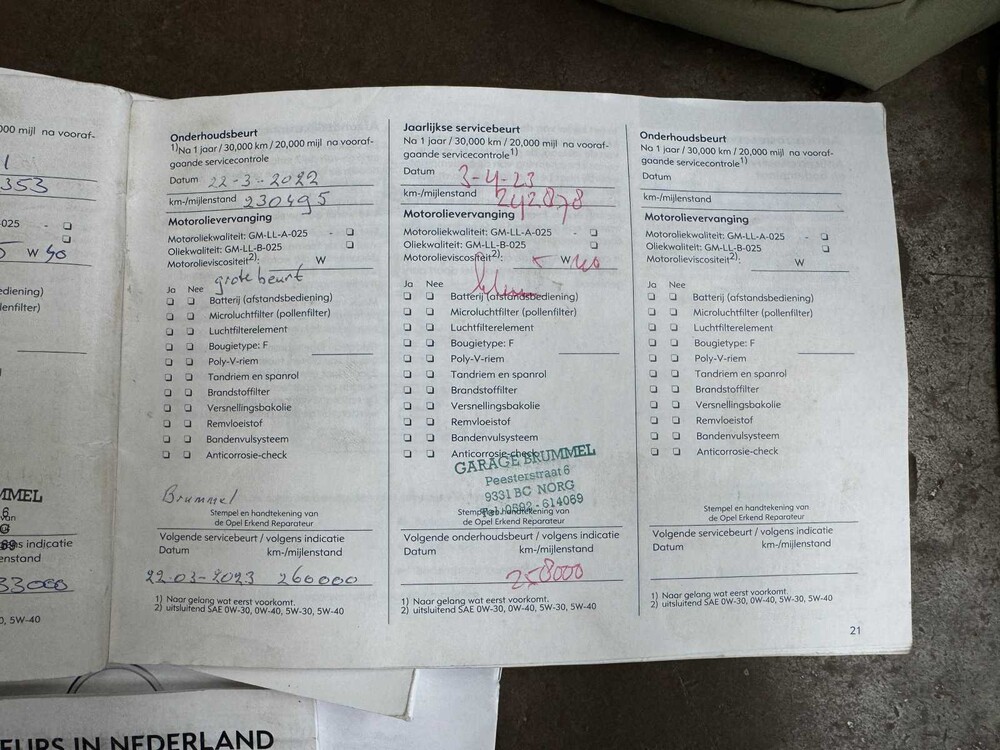 000 mijl na vooraf-
353
025 -
W 40
ediening)
lenfilter)
MMEL
6
ens indicatie
enstand
33000
0, 5W-40
Onderhoudsbeurt
1)Na 1 jaar / 30,000 km / 20,000 mijl na vooraf-
gaande servicecontrole
Datum 22-3-2022
km-/mijlenstand 230495
Motorolievervanging
Motoroliekwaliteit: GM-LL-A-025 -
Oliekwaliteit: GM-LL-B-025
Motorolieviscositeit2): W
grote beurt
Ja Nee
Batterij (afstandsbediening)
Microluchtfilter (pollenfilter)
Luchtfilterelement
Bougietype: F
Poly-V-riem
Tandriem en spanrol
Brandstoffilter
Versnellingsbakolie
Remvloeistof
Bandenvulsysteem
Anticorrosie-check
Brummel
Stempel en handtekening van
de Opel Erkend Reparateur
Volgende servicebeurt / volgens indicatie
Datum km-/mijlenstand
22-03-2023 260000
1) Naar gelang wat eerst voorkomt.
2) uitsluitend SAE 0W-30, 0W-40, 5W-30, 5W-40
Jaarlijkse servicebeurt
Na 1 jaar / 30,000 km / 20,000 mijl na vooraf-
gaande servicecontrole1)
Datum 3-4-23
km-/mijlenstand 242878
Motorolievervanging
Motoroliekwaliteit: GM-LL-A-025 -
Oliekwaliteit: GM-LL-B-025
Motorolieviscositeit2): W 40
Ja Nee
Batterij (afstandsbediening)
Microluchtfilter (pollenfilter)
Luchtfilterelement
Bougietype: F
Poly-V-riem
Tandriem en spanrol
Brandstoffilter
Versnellingsbakolie
Remvloeistof
Bandenvulsysteem
Anticorrosie-check
GARAGE BRUMMEL
Peesterstraat 6
9331 BC NORG
Tel. 0592 - 614069
Stempel en handtekening van
de Opel Erkend Reparateur
Volgende onderhoudsbeurt / volgens indicatie
Datum km-/mijlenstand
258000
1) Naar gelang wat eerst voorkomt.
2) uitsluitend SAE 0W-30, 0W-40, 5W-30, 5W-40
Onderhoudsbeurt
Na 1 jaar / 30,000 km / 20,000 mijl na vooraf-
gaande servicecontrole1)
Datum
km-/mijlenstand
Motorolievervanging
Motoroliekwaliteit: GM-LL-A-025 -
Oliekwaliteit: GM-LL-B-025
Motorolieviscositeit2): W
Ja Nee
Batterij (afstandsbediening)
Microluchtfilter (pollenfilter)
Luchtfilterelement
Bougietype: F
Poly-V-riem
Tandriem en spanrol
Brandstoffilter
Versnellingsbakolie
Remvloeistof
Bandenvulsysteem
Anticorrosie-check
Stempel en handtekening van
de Opel Erkend Reparateur
Volgende servicebeurt / volgens indicatie
Datum km-/mijlenstand
1) Naar gelang wat eerst voorkomt.
2) uitsluitend SAE 0W-30, 0W-40, 5W-30, 5W-40
21
EURS IN NEDERLAND